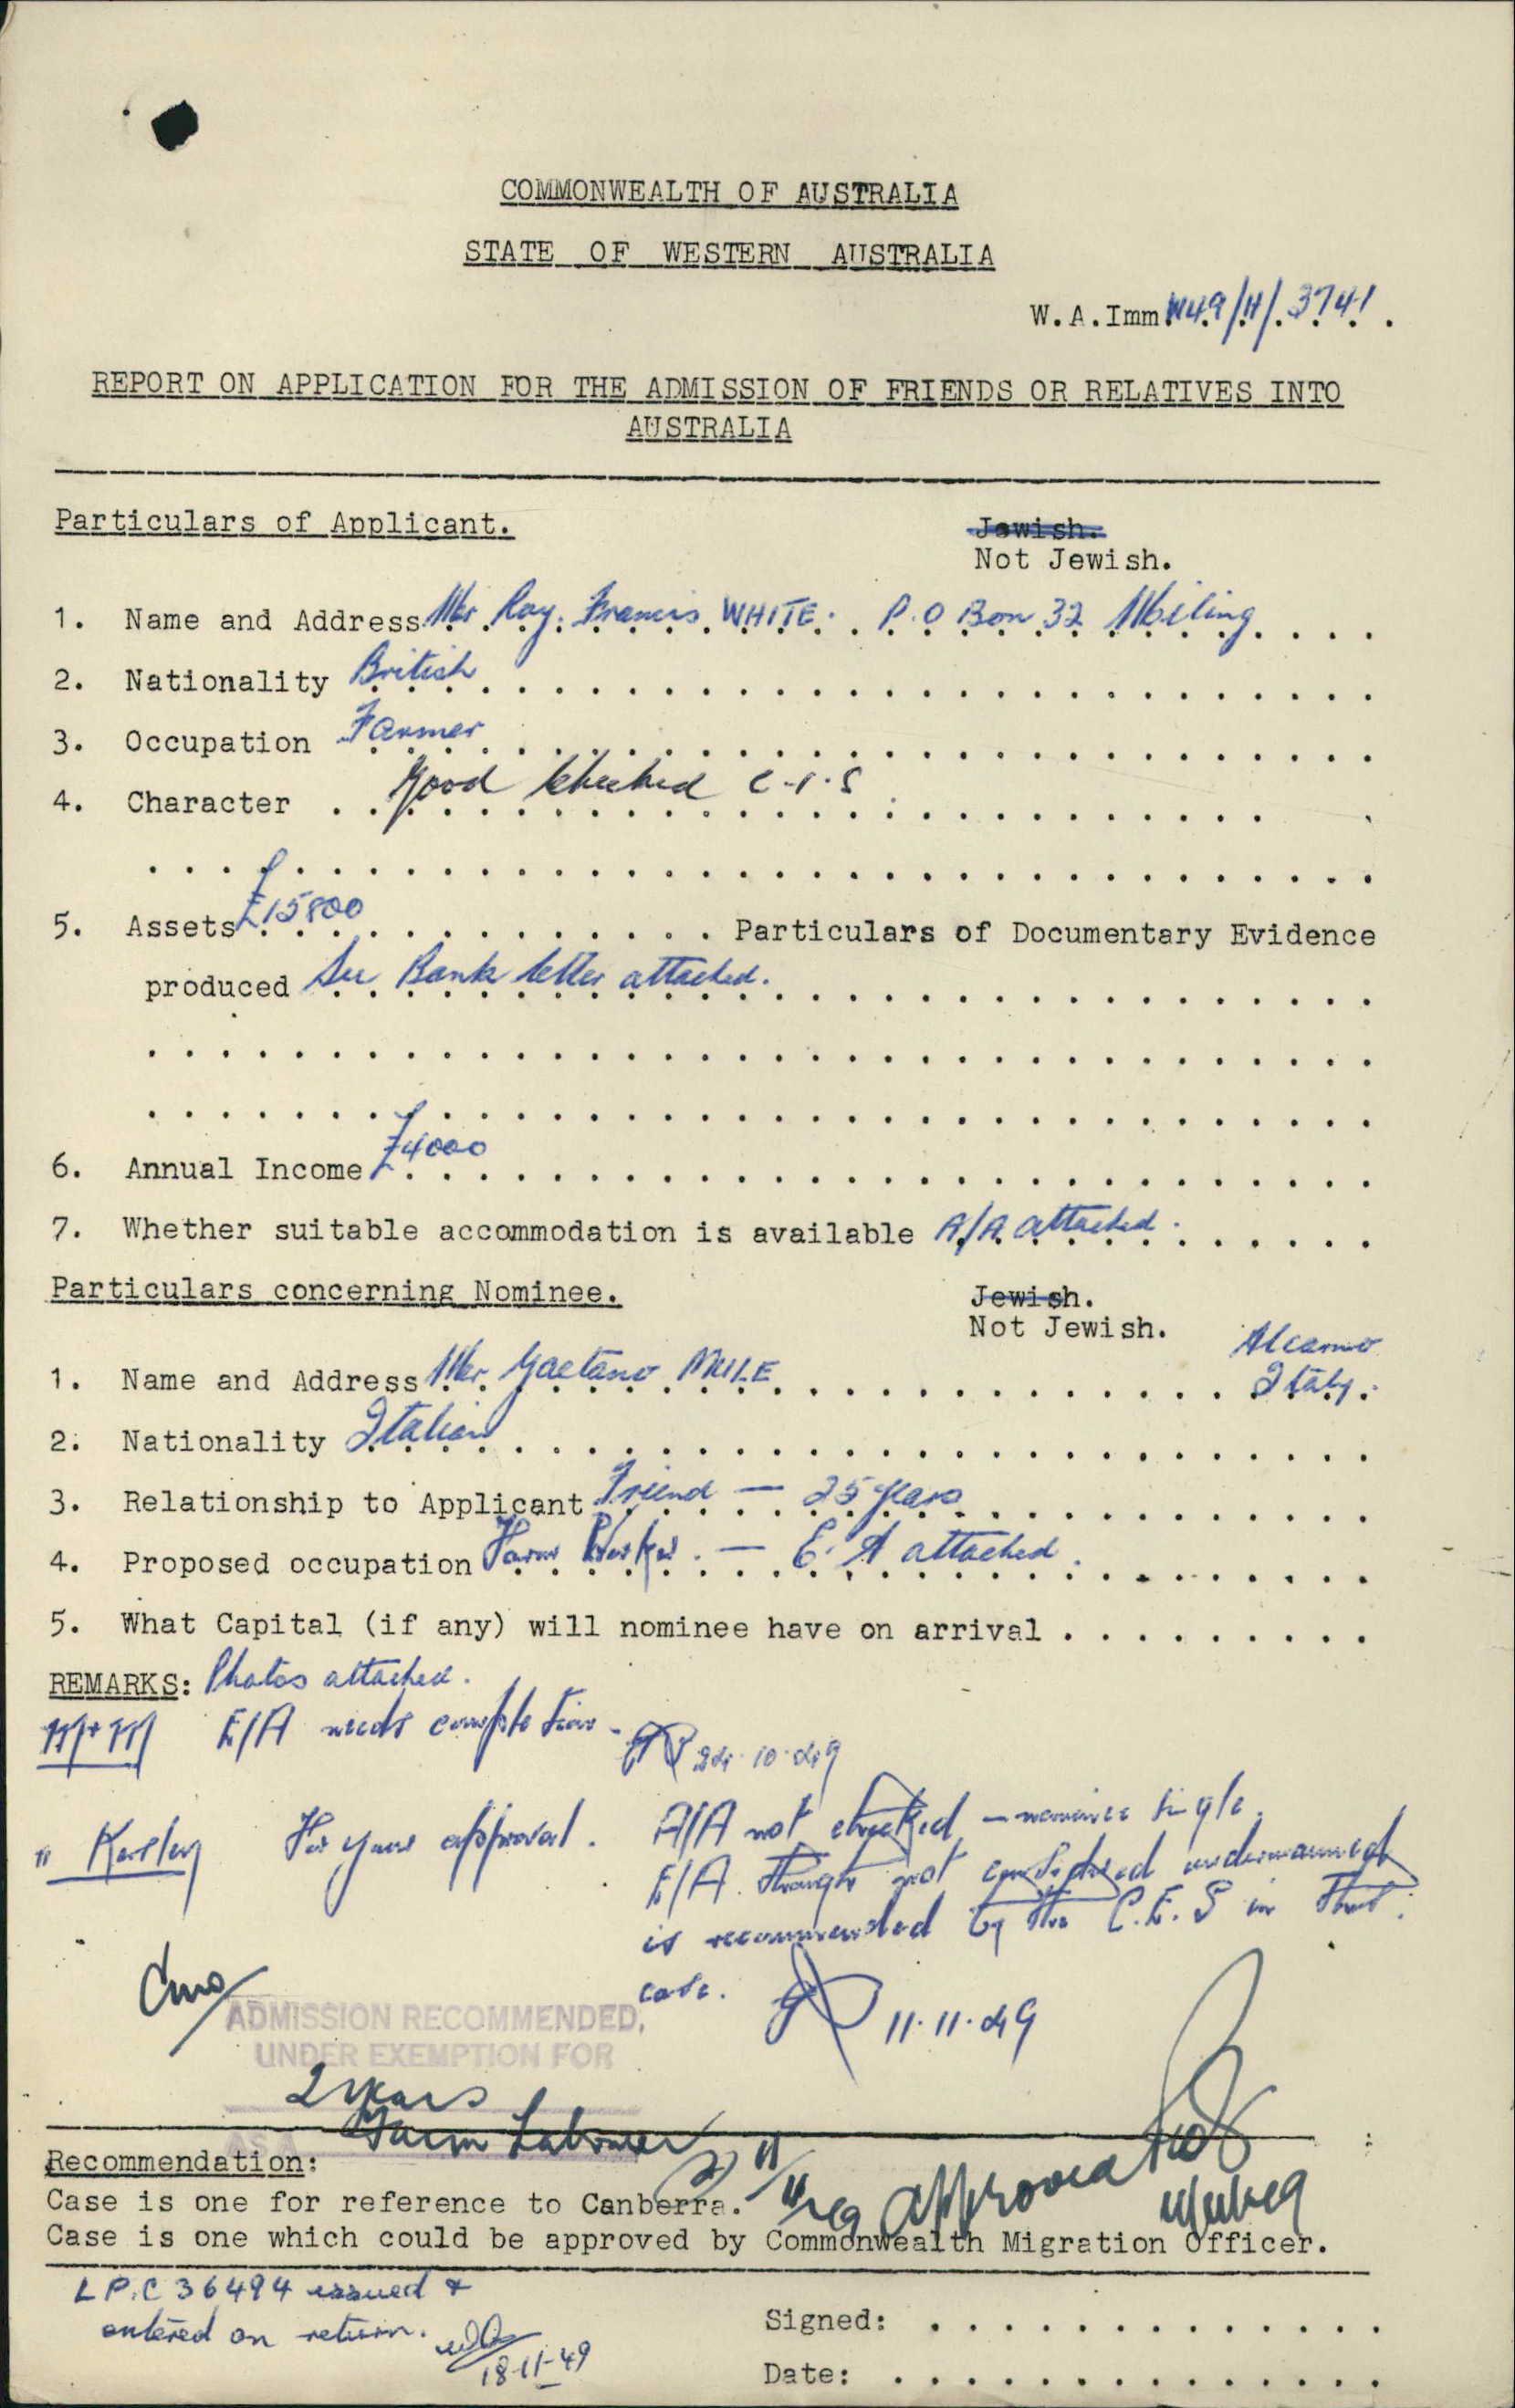 COMMONWEALTH OF AUSTRALIA
STATE OF WESTERN AUSTRALIA
W.A.Imm. W49/H/3741.
REPORT ON APPLICATION FOR THE ADMISSION OF FRIENDS OR RELATIVES INTO
AUSTRALIA
Particulars of Applicant. Jewish.
Not Jewish.
1. Name and Address Mr Roy. Francis WHITE. P.O Box 32 Miling
2. Nationality British
3. Occupation Farmer
4. Character Good checked C.I.S
5. Assets £15800 Particulars of Documentary Evidence
produced See Bank letter attached.
6. Annual Income £4000
7. Whether suitable accommodation is available A/A attached.
Particulars concerning Nominee. Jewish.
Not Jewish.
1. Name and Address Mr. Gaetano MULE Alcamo
Italy.
2. Nationality Italian
3. Relationship to Applicant Friend — 25 years
4. Proposed occupation Farm Worker. — E.A attached.
5. What Capital (if any) will nominee have on arrival
REMARKS: Photos attached.
E/A needs completion - 24.10.49
For your approval. A/A not checked - nominee single.
E/A though not considered undermanned
is recommended by the C.E.S in that
case. 11.11.49
ADMISSION RECOMMENDED,
UNDER EXEMPTION FOR
2 years
AS A Farm Labourer
Recommendation:
Case is one for reference to Canberra. approved
Case is one which could be approved by Commonwealth Migration Officer.
L.P.C 36494 issued &
entered on return.
18-11-49
Signed:
Date: